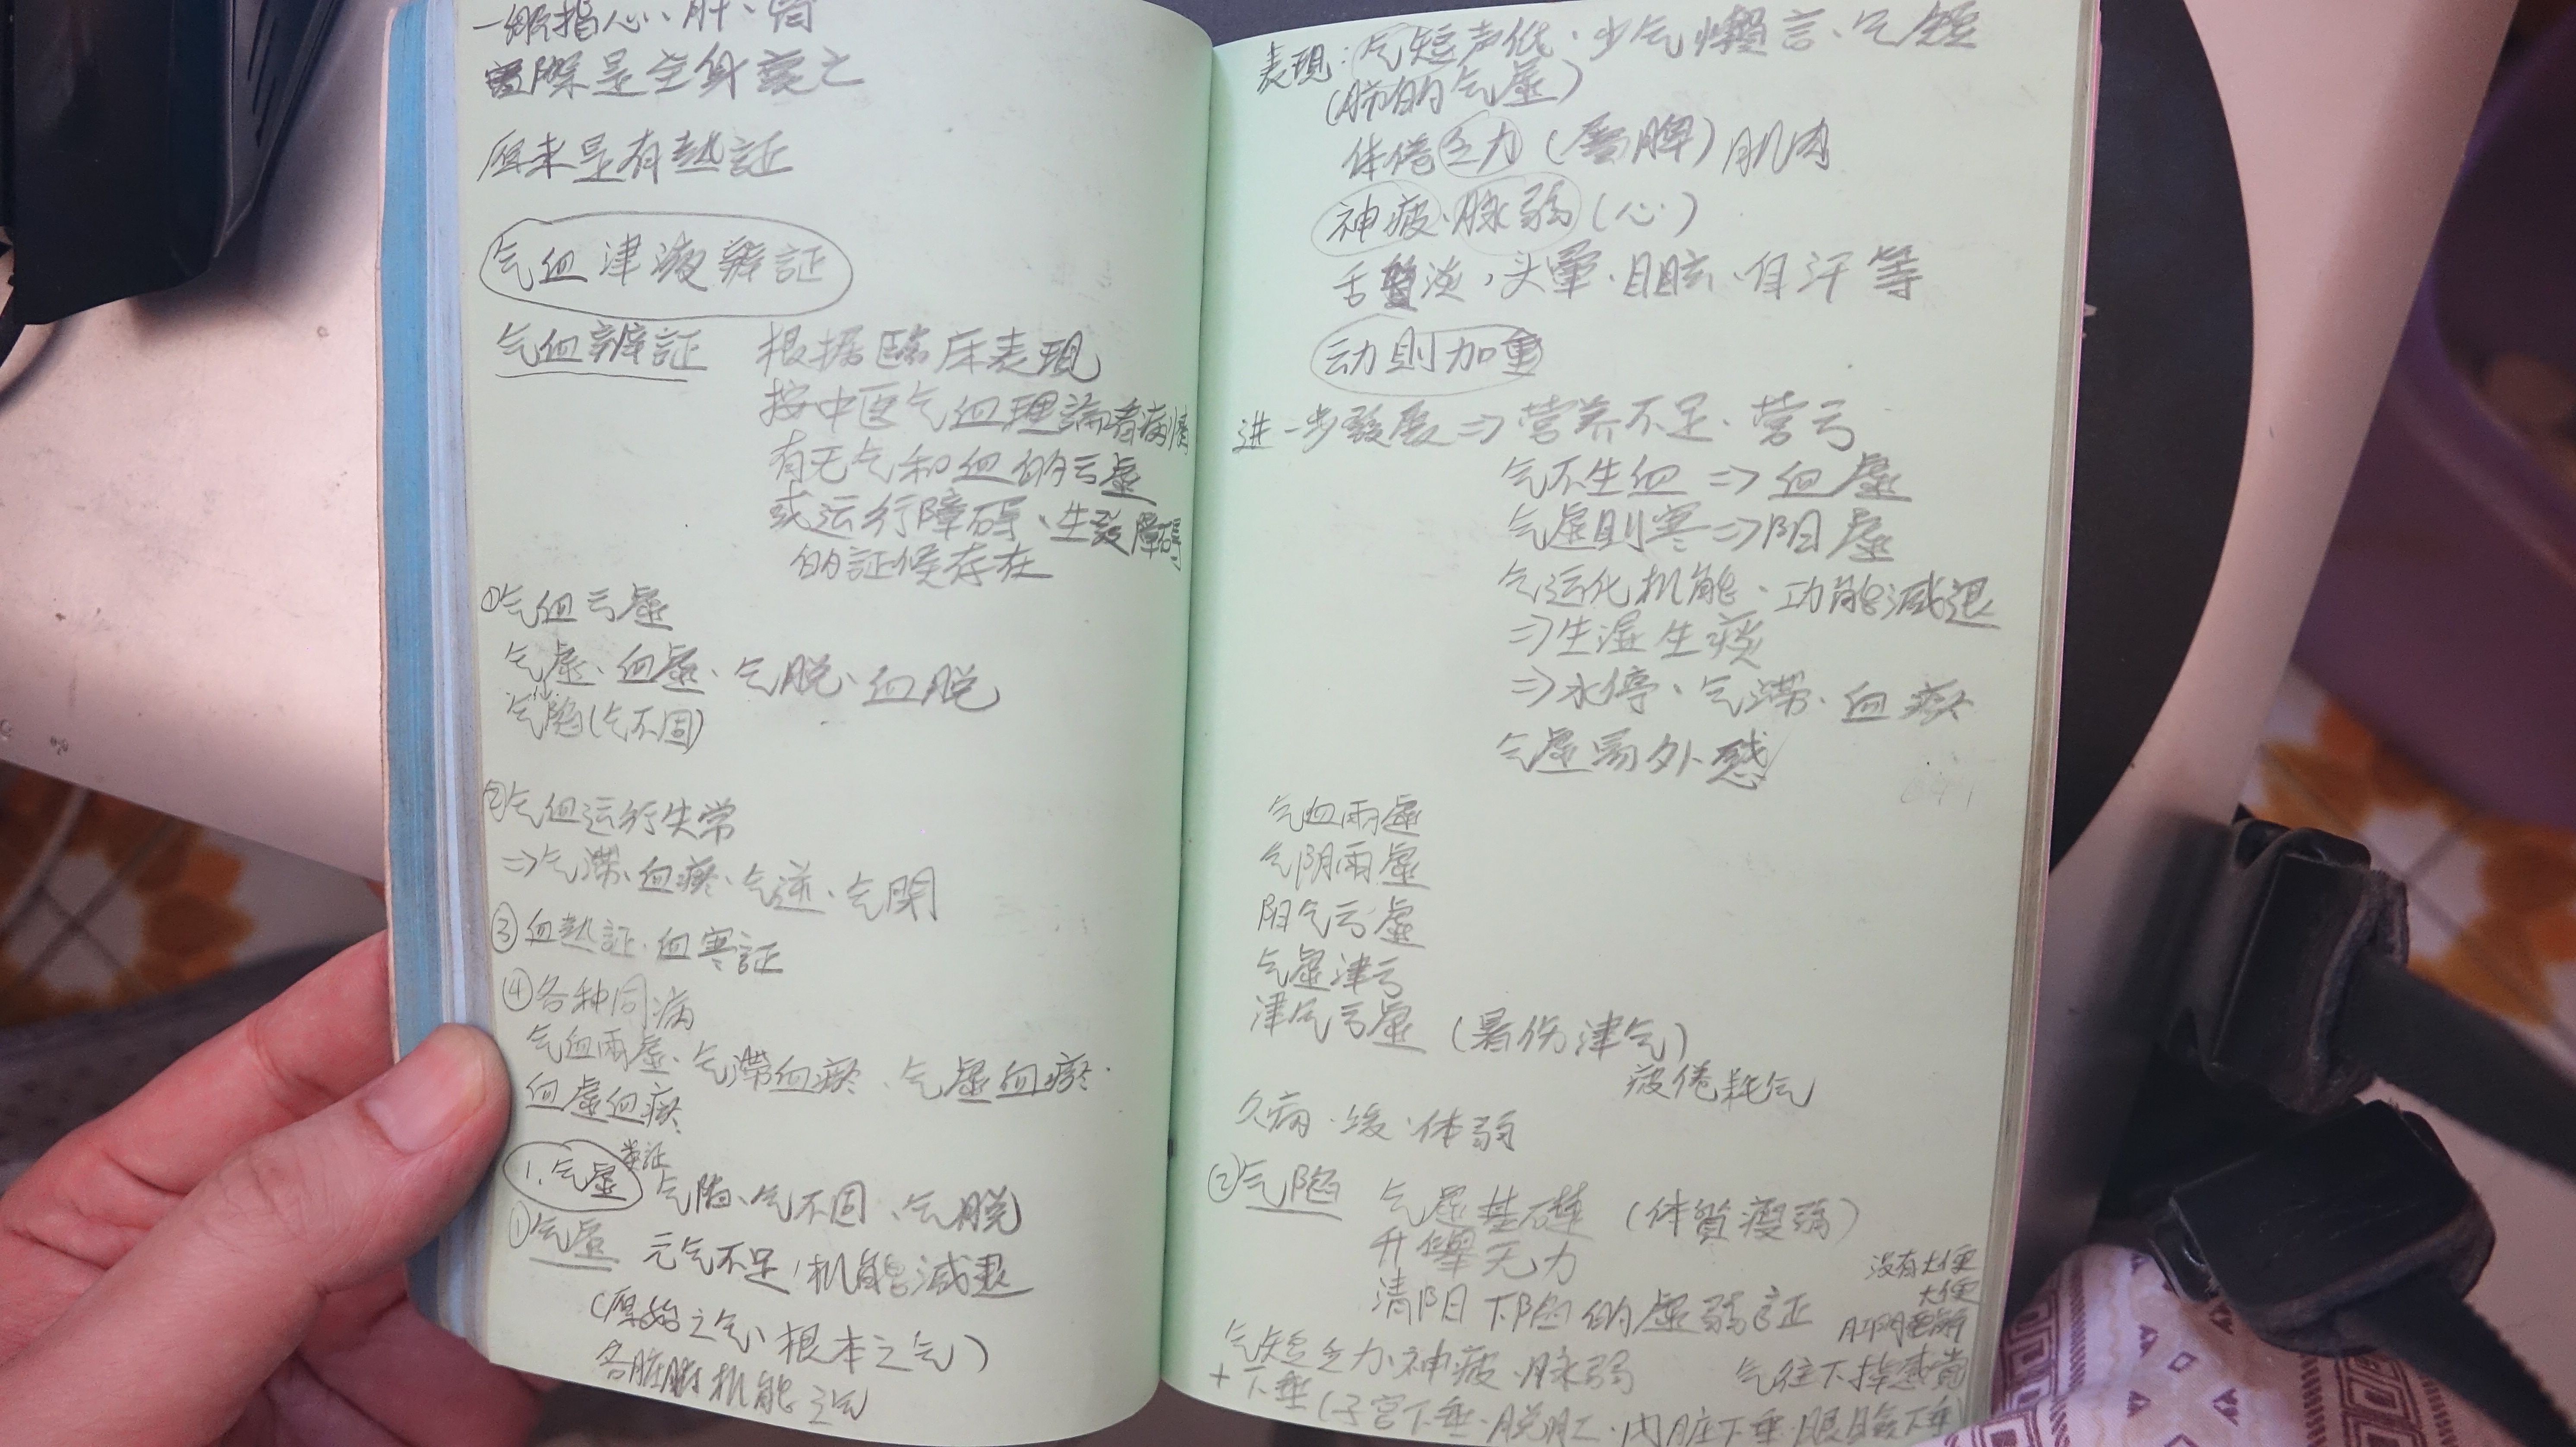 一般指心、肝、肾
實际是全身衰之
原来是有熱証
气血津液辨証
气血辨証 根据臨床表現
按中医气血理論看病情
有无气和血的亏虚
或运行障碍、生發障碍
的証候存在
①气血亏虚
气虚、血虚、气脱、血脱
气陷(气不固)
②气血运行失常
⇒气滞、血瘀、气逆、气閉
③血熱証、血寒証
④各种同病
气血兩虚、气滞血瘀、气虚血瘀
血虚血瘀
1.气虚類証 气陷、气不固、气脱
①气虚 元气不足,机能減退
(原始之气、根本之气)
各脏腑机能之气
表現:气短声低、少气懒言、气短
(肺的气虚)
体倦乏力(屬脾)肌肉
神疲、脉弱(心)
舌質淡,头暈、目眩、自汗等
动则加重
进一步發展⇒营养不足、营亏
气不生血⇒血虚
气虚則寒⇒阳虚
气运化机能、功能減退
⇒生湿生痰
⇒水停、气滞、血瘀
气虚易外感
气血兩虚
气阴兩虚
阳气亏虚
气虚津亏
津气亏虚(暑伤津气)
疲倦耗气
久病、体弱
②气陷 气虚基礎(体質瘦弱)
升舉无力
清阳下陷的虚弱証
没有大便
大便
肛門
气短乏力、神疲、脉弱 气往下掉感覚
+下垂(子宮下垂、脱肛、内脏下垂、眼瞼下垂)